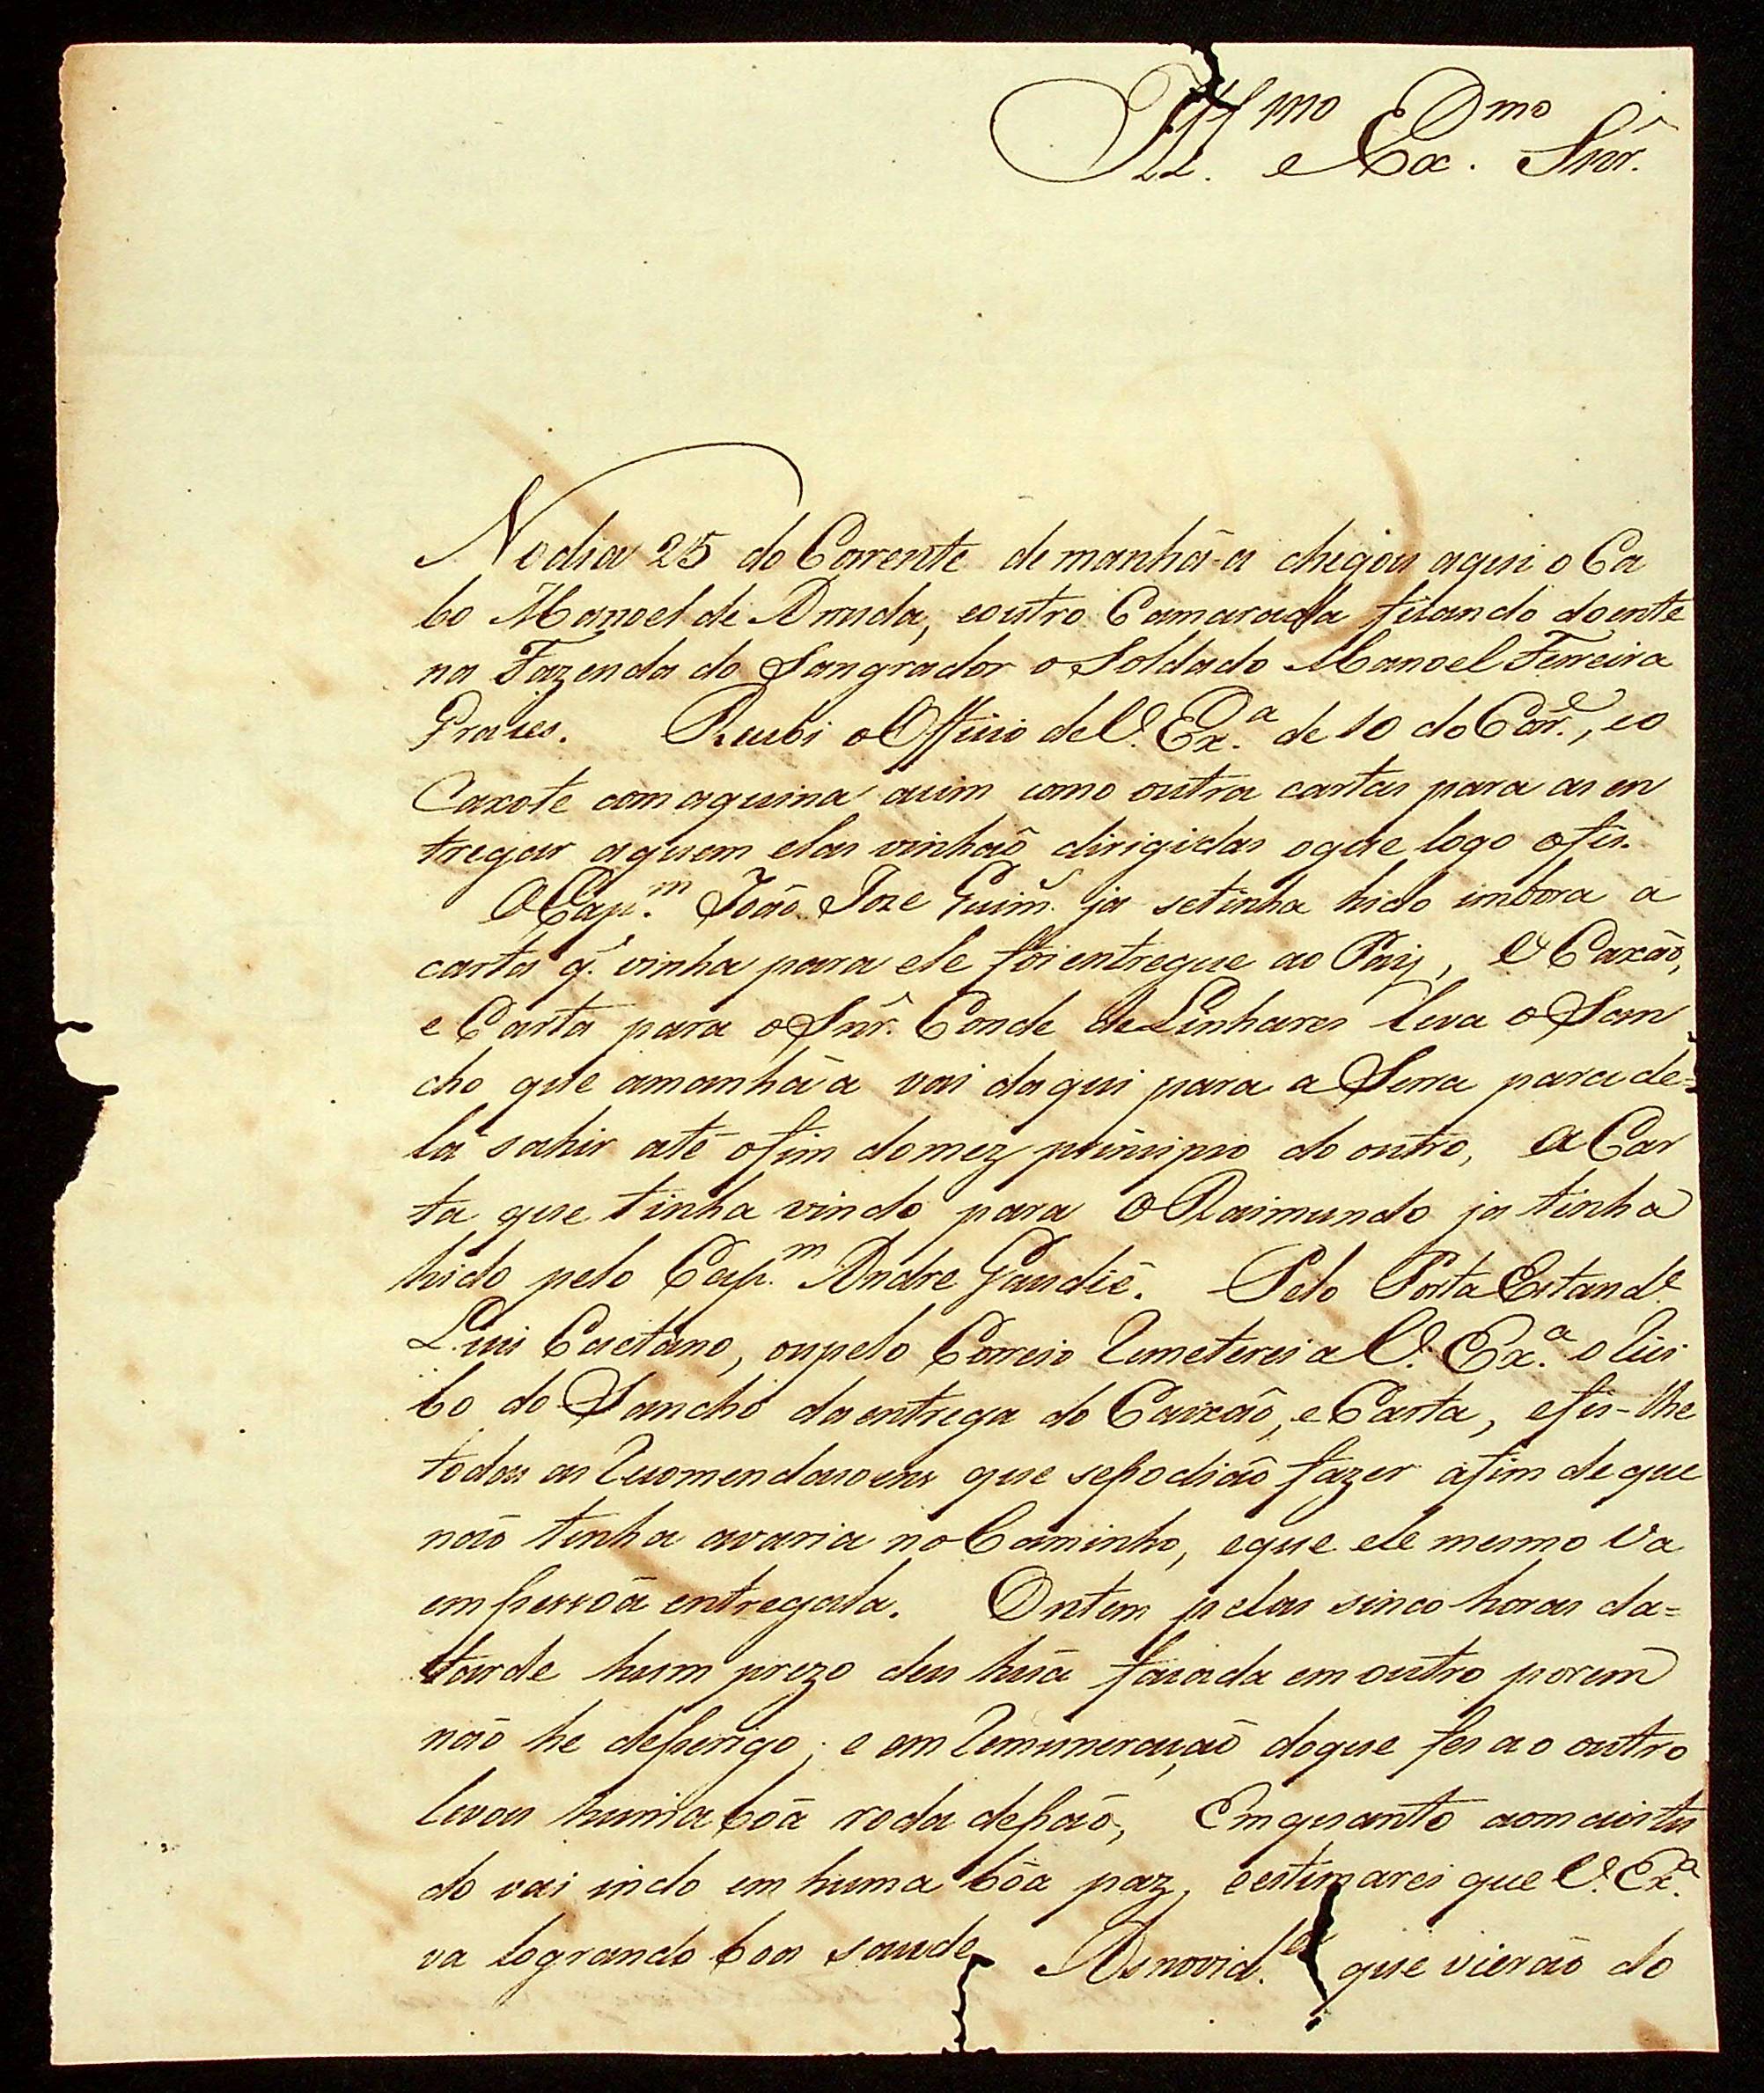 Ill.mo e Ex.mo Snr.
No dia 25 do Corrente de manhã-a chegou aqui o Ca
bo Manoel de Arruda, eoutro Camarada ficando doente
na Fazenda do Sangrador o Soldado Manoel Ferreira
Praues. Recebi o Officio de V. Ex.a de 10 do Corr.e, eo
Caxote comaquina asim como outra cartas para as en
tregar aquem elas vinhaõ dirigidas oque logo ofis.
O Cap.m Joaõ Joze Guim.s ja setinha hido imbora a
carta q.e vinha para ele foi entregue ao Pay, O Caxaõ,
e Carta para o Snr. Conde de Linhares leva o San
cho que amanhã a vai daqui para a Serra parade=
lá sahir até ofim domez principio do outro, a Car
ta que tinha vindo para o Raimundo ja tinha
hido pelo Cap.m Andre Gaudiê. Pelo Porta Estand.e
Luis Caetano, oupelo Correio Remeterei a V. Ex.a o Rici
bo do Sancho daentrega do Caixaõ, e Carta, efis-lhe
todas as Recomendasoens que sepodiaõ fazer afim deque
naõ tinha avaria no Caminho, eque ele mesmo va
empessoã entregala. Ontem pelas sinco horas da=
tarde hum prezo deu huã facada em outro porem
naõ he deperigo; e em Remuneraçaõ doque fes ao outro
levou huma boã roda depaõ, Emquanto aomaistu
do vai indo em huma bõa paz, eestimarei que V. Ex.a
va logrando boa saude As novid.es que vieraõ do